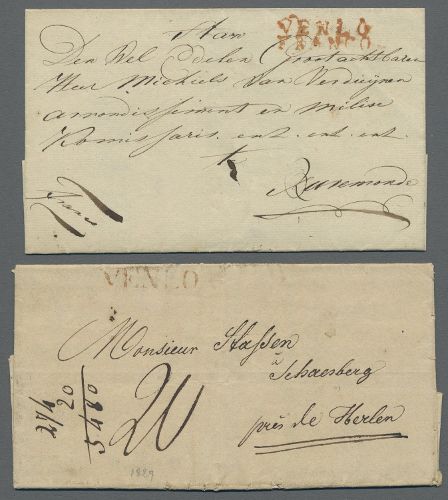 VENLO
FRANCO
Aan
Den Wel Edelen Grootachtbaren
Heer Michiels Van Verduijnen
arrondissiment en Milise
Komissaris. ent. ent. ent.
Franco
Ruremonde
VENLO
Monsieur Stassen
à
Schaesberg
près de Herlen
20
27/1
20
5480
1829